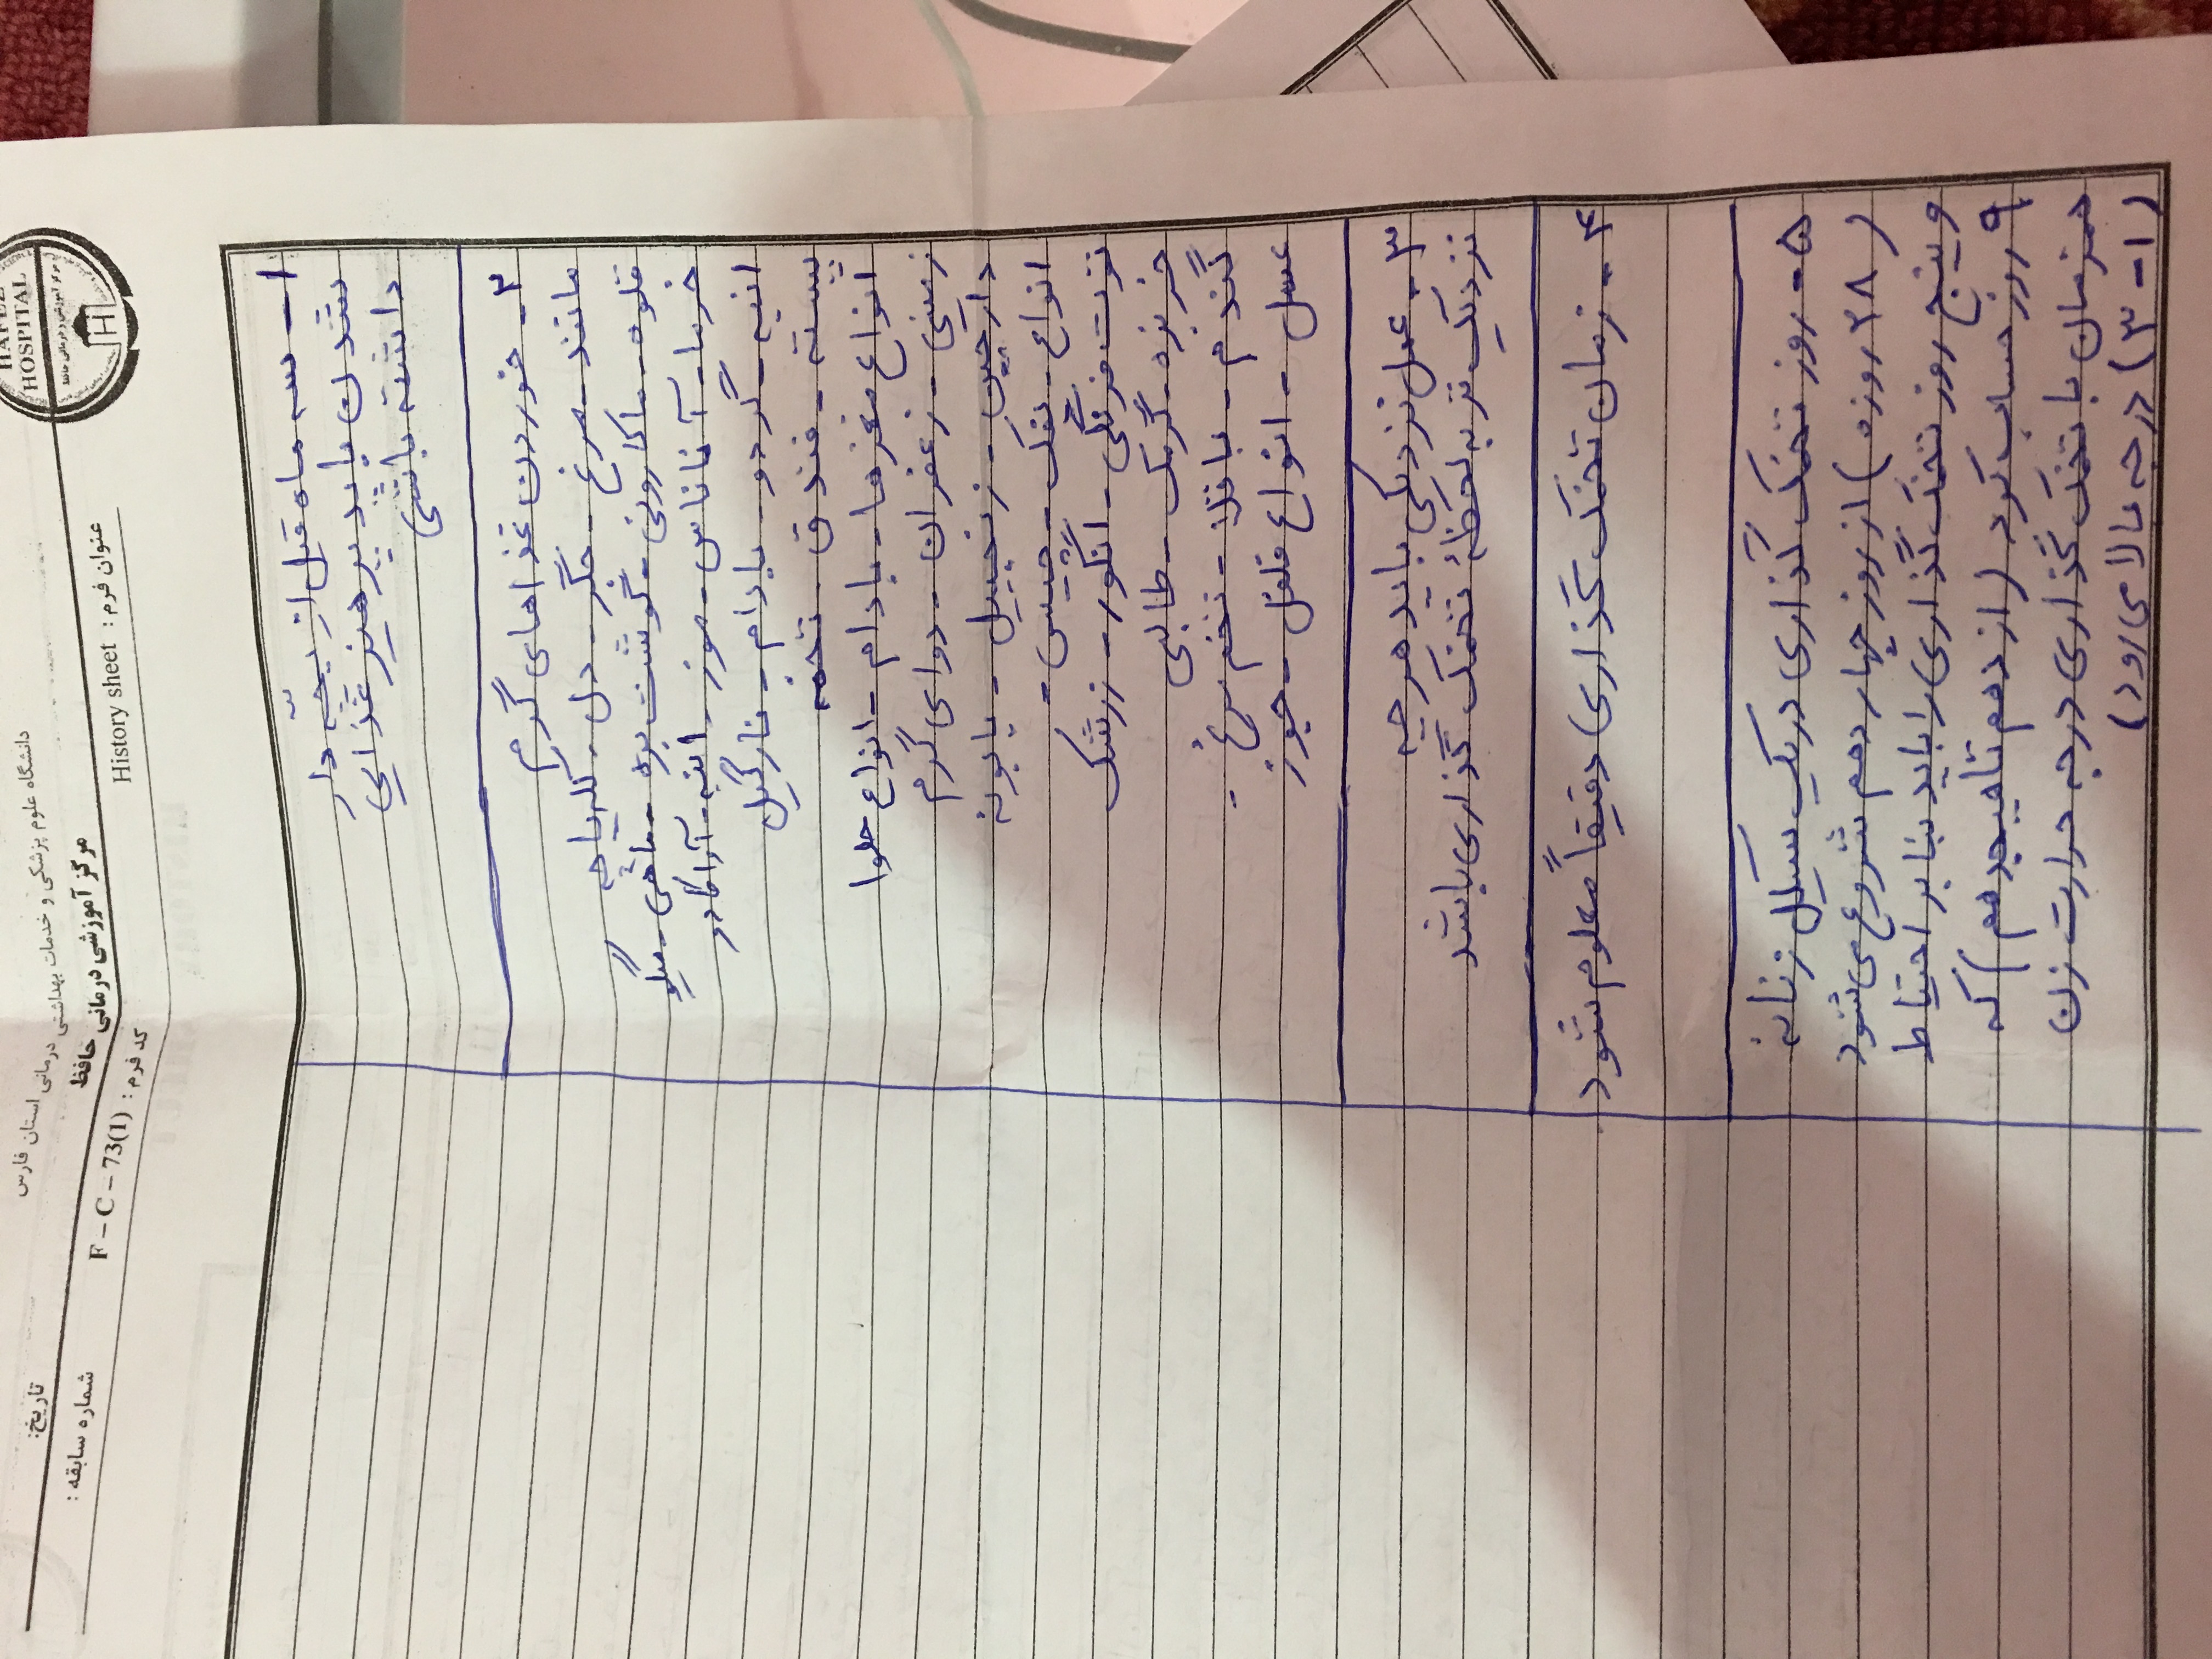 HAFEZ
HOSPITAL
دانشگاه علوم پزشکی و خدمات بهداشتی درمانی استان فارس
مرکز آموزشی درمانی حافظ
عنوان فرم : History sheet
کد فرم : F – C – 73(1)
تاریخ:
شماره سابقه :
۱- سه ماه قبل از بچّه دار
شدن باید پرهیز غذایی
داشته باشی
۲- خوردن غذاهای گرم
مانند- مرغ - جگر- دل - کله پاچه
قلوه - ماکارونی - گوشت بره - ماهی - میگو
خرما - آناناس - موز - انبه - آواکادو
انبه - گردو - بادام - نارگیل
پسته - فندق - تخمه
انواع مغزها - بادام - انواع حلوا
زمینی - زعفران - دوای گرم
دارچین - زنجبیل - بابونه
انواع - پفک - چیپس -
توت فرنگی - انگور - زرشک
خربزه - گرمک - طالبی
گندم - باقلا - تخم مرغ -
عسل - انواع فلفل - جوز
۳- عمل نزدیکی باید هر چه
نزدیک تر به لحظهٔ تخمک گذاری باشد
۴- زمان تخمک گذاری دقیقاً معلوم شود
۵- روز تخمک گذاری در یک سیکل زنانه
(۲۸ روزه) از روز چهاردهم شروع می شود
و پنج روز تخمک گذاری را باید بنابر احتیاط
۹ روز حساب کرد (از دهم تا هیجدهم) که
همزمان با تخمک گذاری درجه حرارت زن
(۱-۳) درجه بالا می رود)